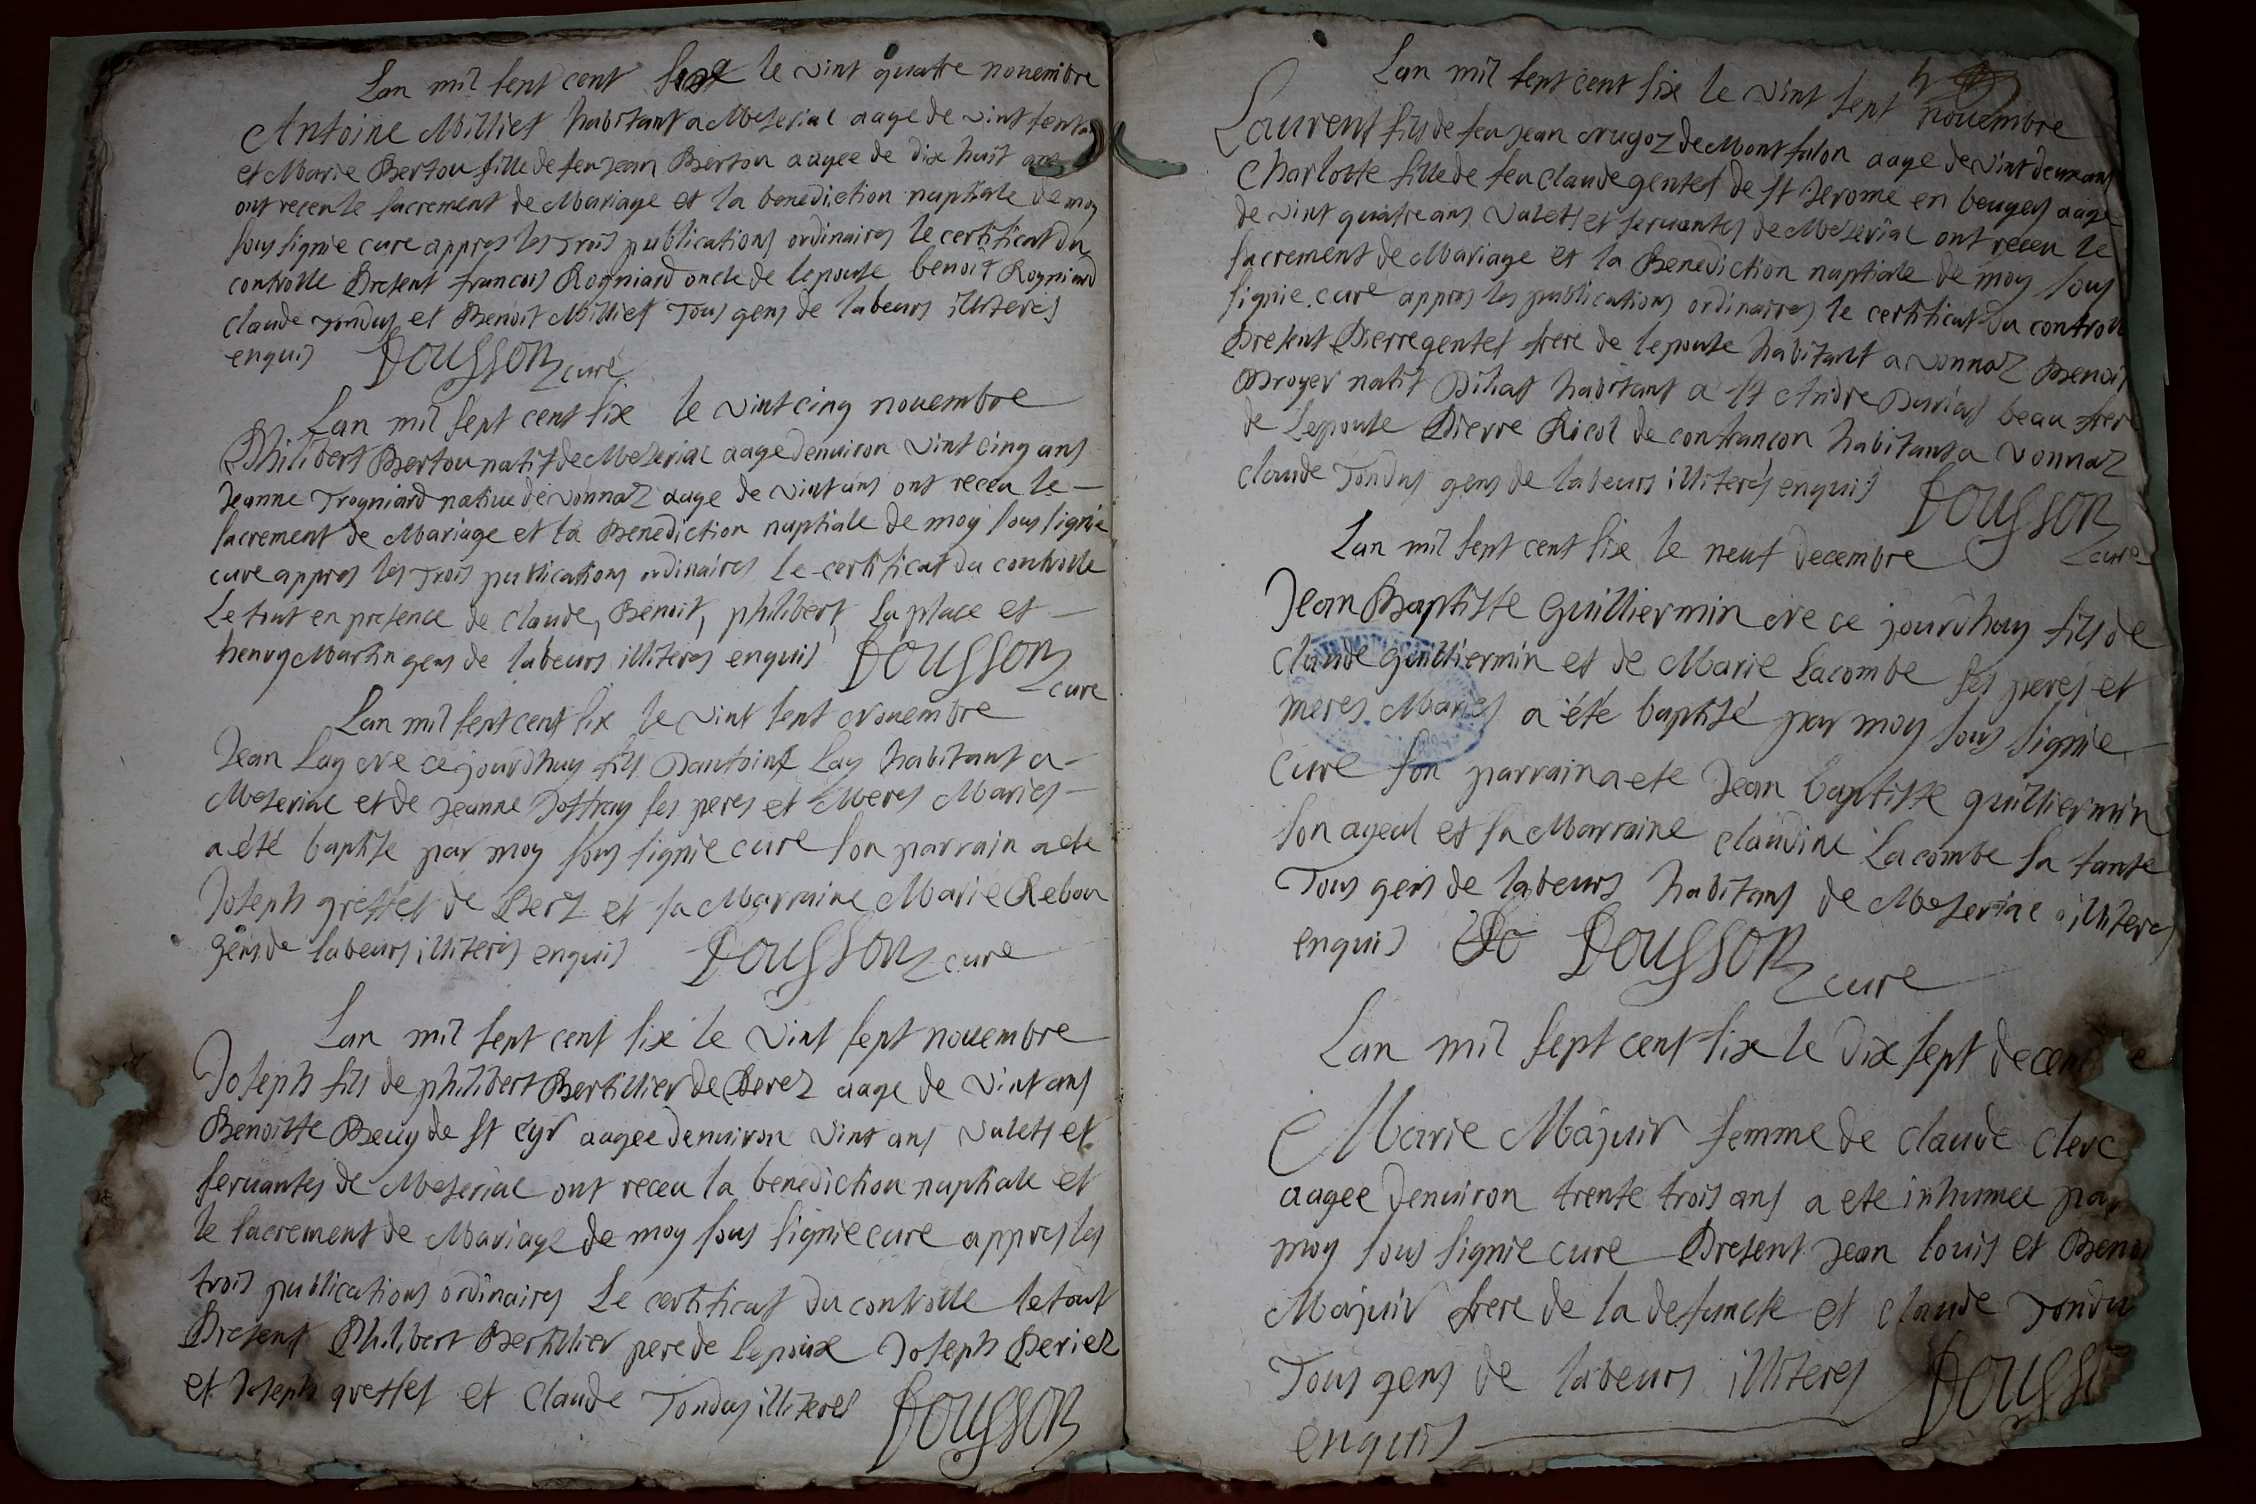 Lan mil sept cent six le vint quatre nouembre
Antoine Milliet habitant a Meserial aage de vint sept ans
et Marie Bertou fille de feu Jean Bertou aagee de dix huit ans
ont receu le sacrement de Mariage et la benediction nuptiale de moy
sous signie cure appres les trois publications ordinaires le certificat du
controlle Present francois Rogniard oncle de lepouse benoit Rogniard
claude Tondus et Benoit Milliet Tous gens de labeurs illiteres
enquis Pousson cure
Lan mil sept cent six le vint cinq nouembre
Philibert Bertou natif de Meserial aage denuiron vint cinq ans
Jeanne Trogniard natiue de vonnaz aage de vint ans ont receu le
sacrement de Mariage et la Benediction nuptiale de moy sous signie
cure appres les trois publications ordinaires le certificat du controlle
Le tout en presence de claude, Benoit, philibert, La place et
henry Martin gens de labeurs illiteres enquis Pousson
cure
Lan mil sept cent six le vint sept Nouembre
Jean Lay Ne ce jourdhuy fils Dantoine Lay habitant a
Meserial et de Jeanne Joffray ses peres et Meres Maries
a été baptise par moy sous signie cure son parrain a ete
Joseph greffet de Berz et sa Marraine Marie Rebou
gens de labeurs illiteres enquis Pousson cure
Lan mil sept cent six le vint sept nouembre
Joseph fils de philibert Bertillier de Perez aage de vint ans
Benoitte Beuy de st cyr aagee denuiron vint ans valets et
seruantes de Meserial ont receu la benediction nuptiale et
le sacrement de Mariage de moy sous signie cure appres les
trois publications ordinaires Le certificat du controlle le tout
Present Philibert Bertillier pere de lepoux Joseph Periez
et Joseph greffet et claude Tondus illiteres Pousson
Lan mil sept cent six le vint sept nouembre
Laurent fils de feu Jean Nugoz de Mont falon aage de vint deux ans
Charlotte fille de feu claude gentet de st Jerome en beugeis aage
de vint quatre ans valets et seruantes de Meserial ont receu le
sacrement de Mariage et la Benediction nuptiale de moy sous
signie cure appres les publications ordinaires le certificat du controlle
Present Pierre gentet frere de lepouse habitant a vonnaz Benoit
Broyer natif Dihat habitant a st Andre Durias beau frere
de Lepouse Pierre Ricol de confrancon habitant a vonnaz
claude Tondus gens de labeurs illiterés enquis Pousson
cure
Lan mil sept cent six le neuf decembre
Jean Baptiste Guilliermin Ne ce jourdhuy fils de
claude guilliermin et de Marie Lacombe ses peres et
meres Maries a été baptisé par moy sous signie
cure son parrain a ete Jean baptiste guilliermin
son ayeul et sa Marraine claudine Lacombe sa tante
Tous gens de labeurs habitans de Meserial illiteres
enquis Pousson cure
Lan mil sept cent six le dix sept decembre
Marie Majuir femme de claude clerc
aagee denuiron trente trois ans a ete inhumee par
moy sous signie cure Present Jean louis et Benoi
Majuir frere de la defuncte et claude Tondu
Tous gens de labeurs illiteres Pousson
enquis